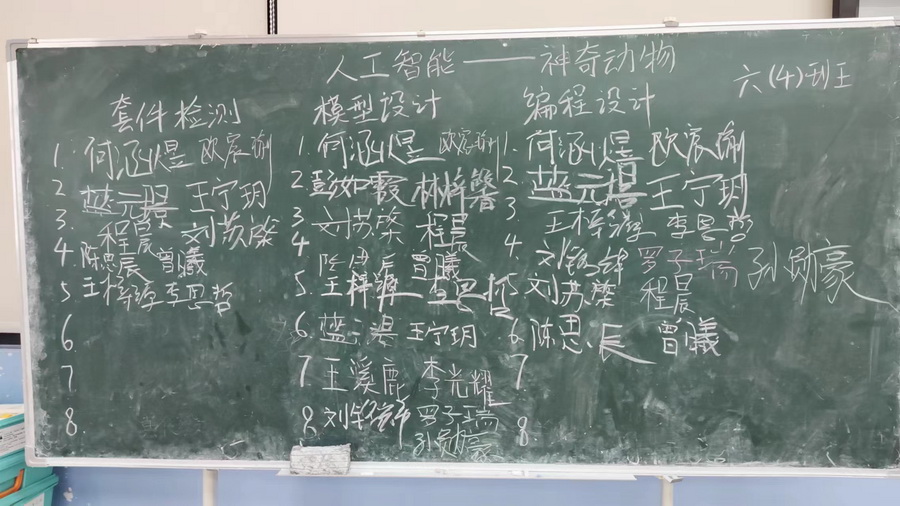 人工智能——神奇动物
六(4)班王
套件检测
1. 何涵煜 欧宸瑜
2 蓝元 王宁玥
3. 程晨 刘苏棨
4 陈思辰 曾曦
5 王梓源 李思哲
6
7
8.
模型设计
1. 何涵煜 欧宸瑜
2 彭如霞 林梓馨
3 刘苏棨 程晨
4. 陈思辰 曾曦
5. 王梓源 李思哲
6. 蓝元 王宁玥
7 王溪鹿 李光耀
8 刘 罗子瑞
孙勋豪
编程设计
1. 何涵煜 欧宸瑜
2. 蓝元 王宁玥
3. 王梓源 李思哲
4. 刘 罗子瑞 孙勋豪
5. 刘苏棨 程晨
6 陈思辰 曾曦
7
8